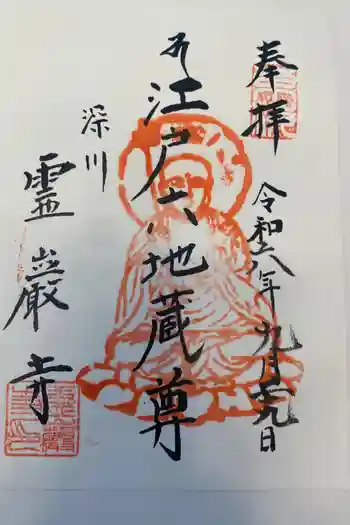 奉拝
令和六年九月廿九日
江戸六地蔵尊
深川
霊巌寺